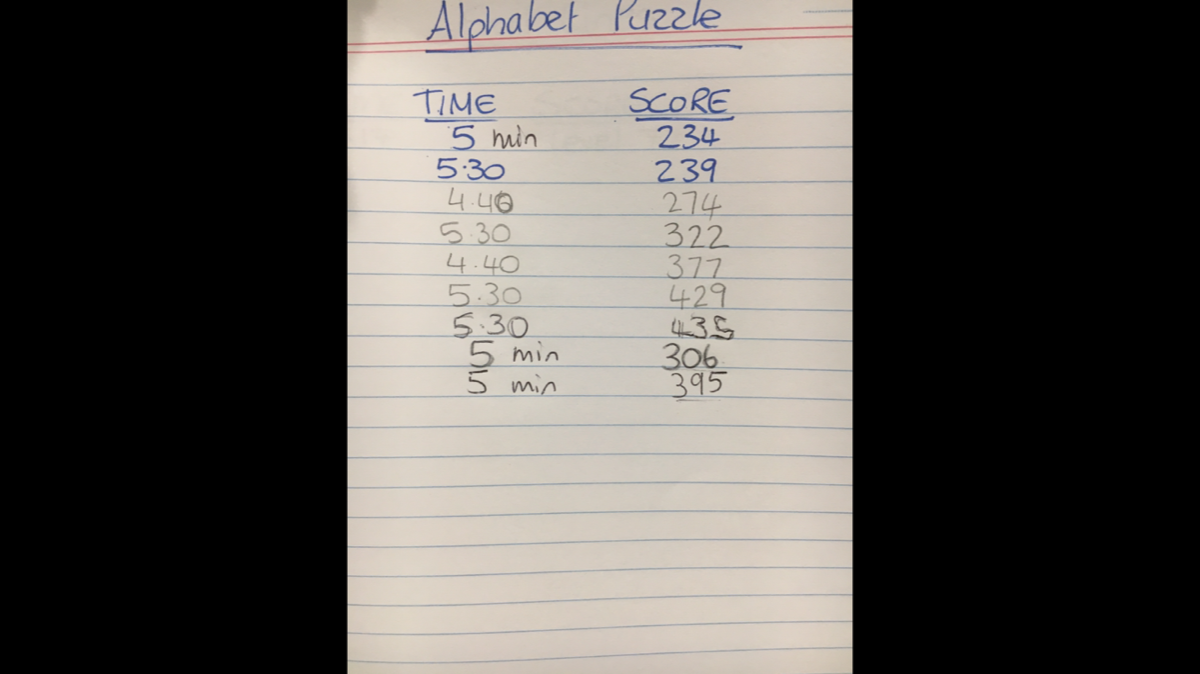 Alphabet Puzzle
TIME SCORE
5 min 234
5.30 239
4.40 274
5.30 322
4.40 377
5.30 429
5.30 435
5 min 306
5 min 395